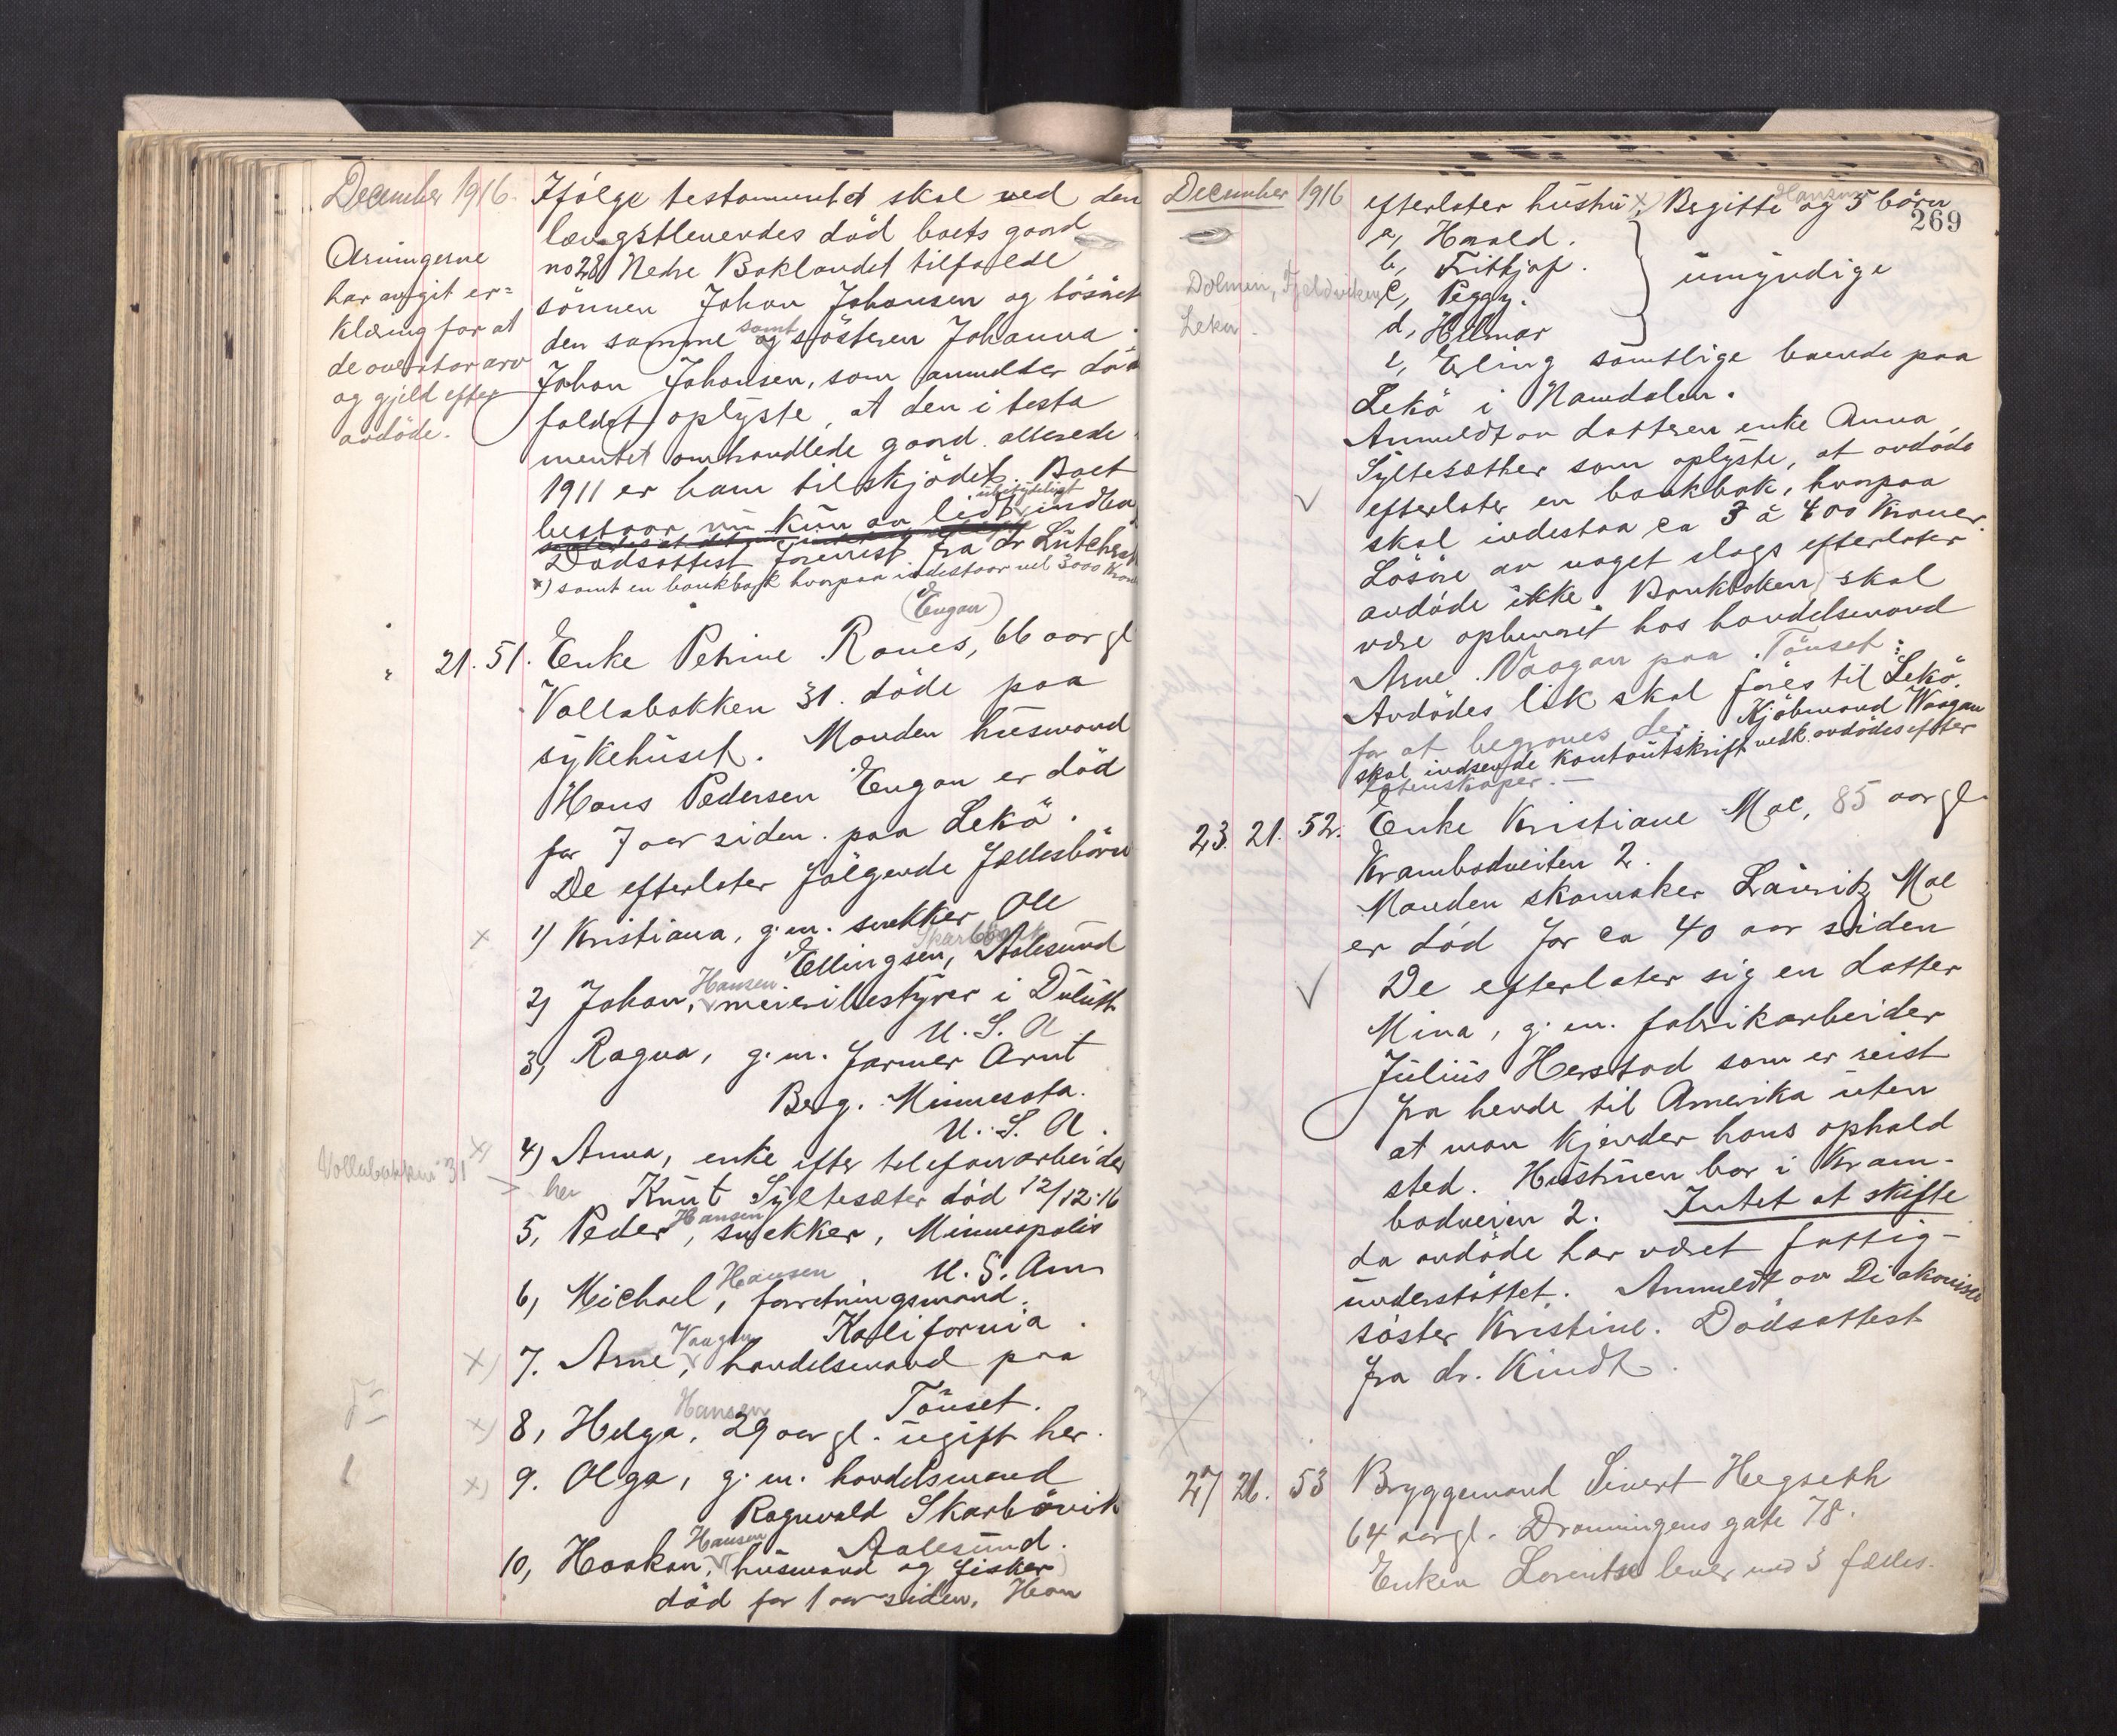 December 1916.
Ifölge testamentet skal ved den
længstlevendes död boets gaard
no 28 Nedre Baklandet tilfalde
sönnen Johan Johansen og lösöret
den samme samt og sösteren Johanna.
Johan Johansen, som anmeldte döds
faldet oplyste, at den i testa
mentet omhandlede gaard allerede
1911 er ham tilskjödet. Boet
bestaar nu kun av lidt ubetydeligt indbo
Dödsattest forevist fra dr Lütcher
x) samt en bankbok hvorpaa indestaar vel 3000 Kroner
Arvingerne
har avgit er=
klæring for at
de overtar arv
og gjeld efter
avdöde.
(Engan)
21. 51. Enke Petrine Rones, 66 aar gl
Vollabakken 31. döde paa
sykehuset. Manden husmand
Hans Pedersen Engan er död
for 7 aar siden paa Lekö.
De efterlater fölgende fællesbörn
x 1) Kristiana, g. m. snekker Ole
Skarbövik
Ellingsen, Aalesund
2) Johan, Hansen meieribestyrer i Duluth
U. S. A
3, Ragna, g. m. farmer Arnt
Berg. Minnesota.
U. S. A.
x) 4) Anna, enke efter telefonarbeider
Vollabakken 31
her Knut Syltesæter död 12/12-16
5, Peder Hansen, snekker, Minneapolis
U. S. Am
6, Michael, Hansen forretningsmand.
Kalifornia.
x) 7. Arne, Vaagan handelsmand paa
Tönset.
x) 8, Helga, Hansen 29 aar gl. ugift her.
x) 9. Olga, g. m. handelsmand
Ragnvald Skarbövik
Aalesund.
10, Haakon, Hansen husmand og fisker
död for 1 aar siden. Han
December 1916
269
efterlater hustru x) Bergitte Hansen og 5 börn
a, Harald.
b, Fritjof.
c, Peggy.
d, Hilmar
umyndige
e, Erling samtlige boende paa
Dolmen, Fjeldviken
Leka.
Lekö i Namdalen.
Anmeldt av datteren enke Anna
Syltesæther som oplyste, at avdöde
efterlater en bankbok, hvorpaa
skal indestaa ca 3 à 400 Kroner.
Lösöre av noget slags efterlater
avdöde ikke. Bankboken skal
være opbevaret hos handelsmand
Arne Vaagan paa Tönset.
Avdödes lik skal föres til Lekö
for at begraves der. Kjöbmand Waagan
skal indsende kontoutskrift vedk. avdödes efter
latenskaper. —
23. 21. 52. Enke Kristiane Moe, 85 aar gl.
Krambodveiten 2.
Manden skomaker Lauritz Moe
er död for ca 40 aar siden
De efterlater sig en datter
Mina, g. m. fabrikarbeider
Julius Herstad som er reist
fra hende til Amerika uten
at man kjender hans ophold
sted. Hustruen bor i Kram-
bodveien 2. Intet at skifte
da avdöde har været fattig-
understöttet. Anmeldt av Diakonisse
söster Kristine. Dödsattest
fra dr. Kindt.
27 26. 53 Bryggemand Sivert Hegseth
64 aar gl. Dronningens gate 78.
Enken Lorentse lever med 3 fælles.